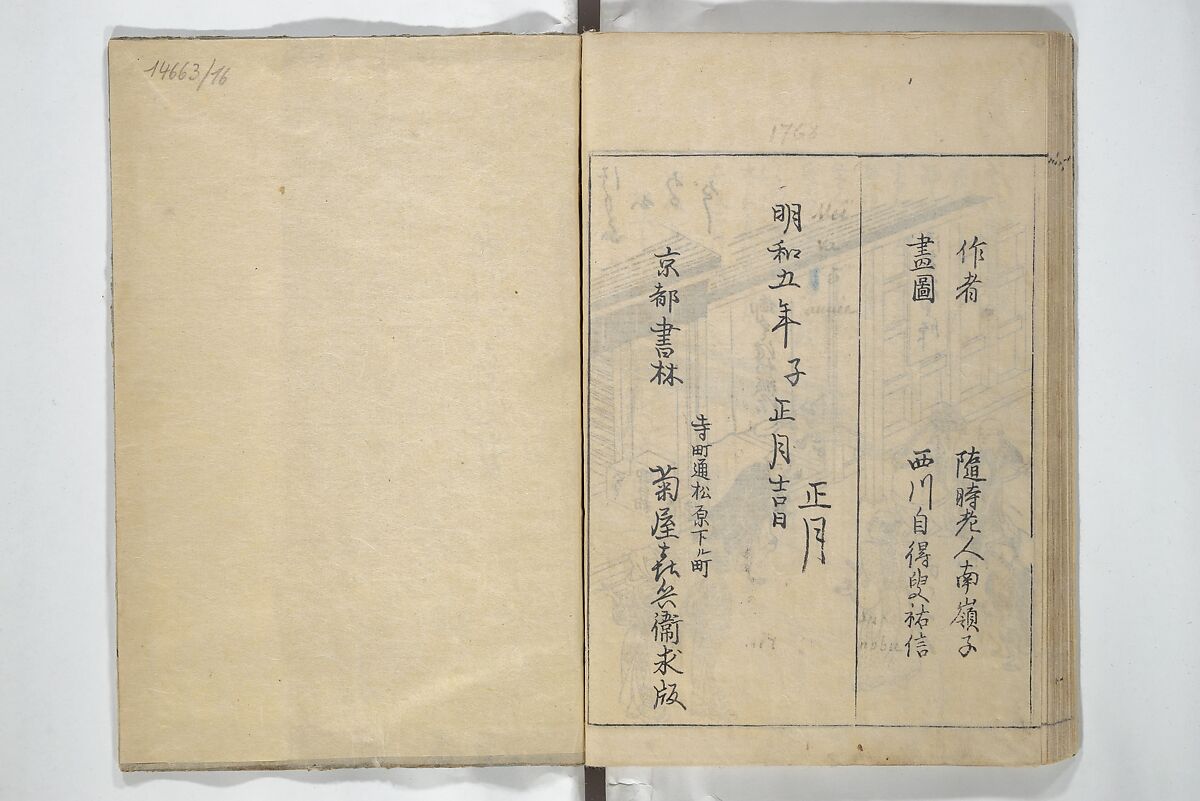 14663/16
1768
作者　隨時老人南嶺子
畫圖　西川自得叟祐信
正月
明和五年子正月吉日
寺町通松原下ル町
京都書林　菊屋㐂兵衛求版